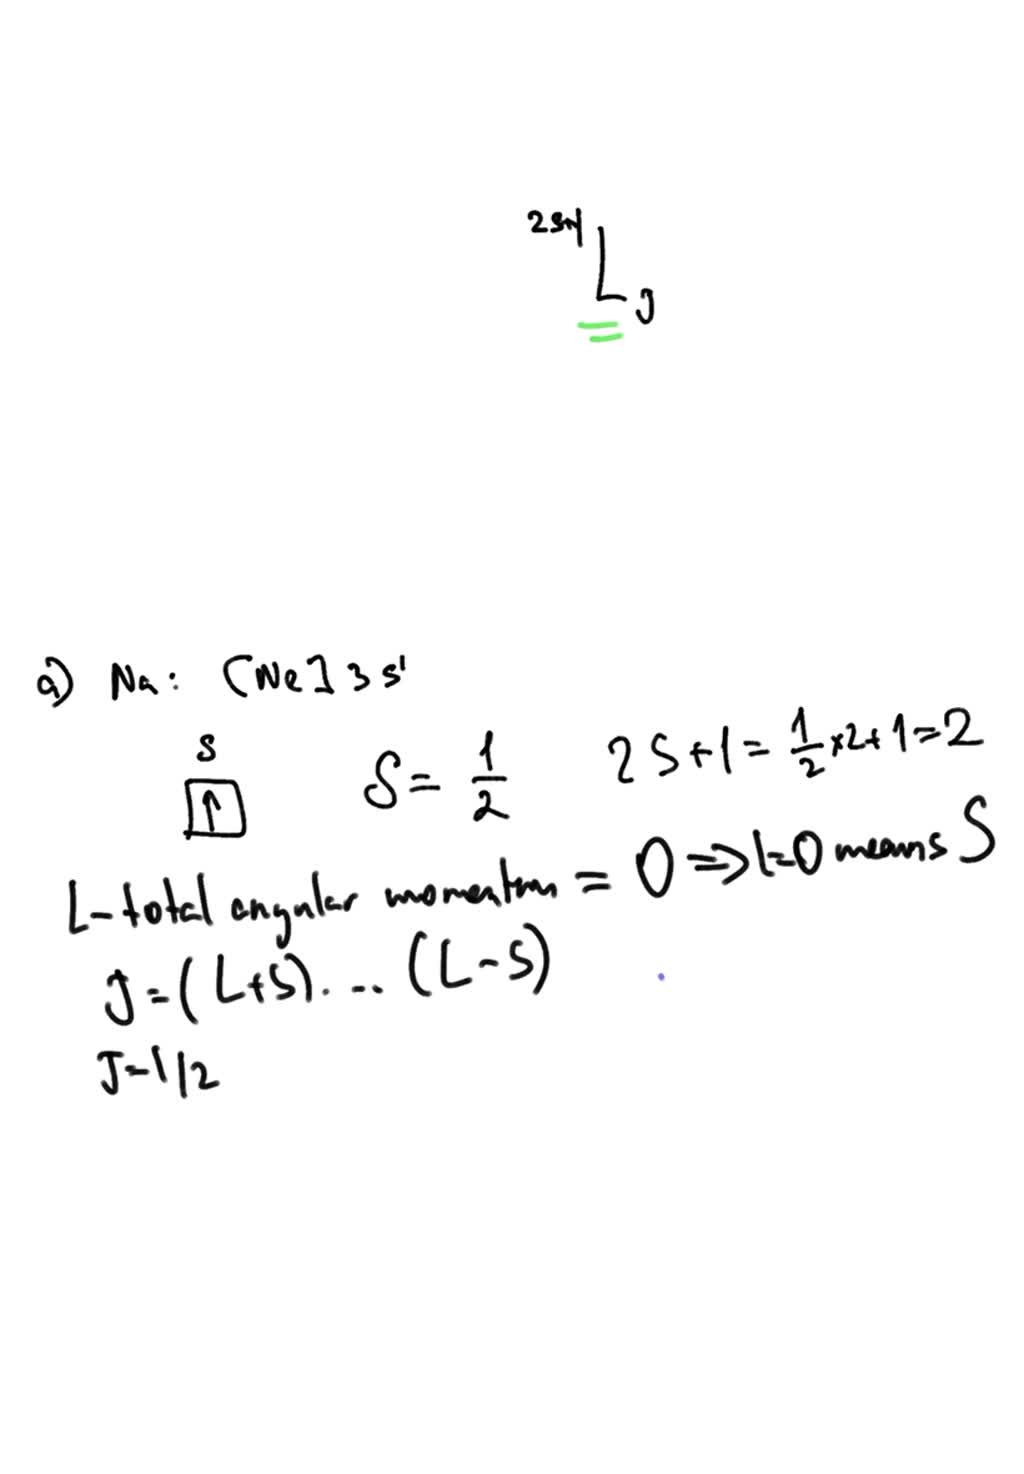 2S+1
L J
a) Na: [Ne] 3s¹
S
↑ S = 1/2 2S+1 = 1/2 ×2+1=2
L-total angular momentum = 0 => L=0 means S
J=(L+S)... (L-S)
J=1/2